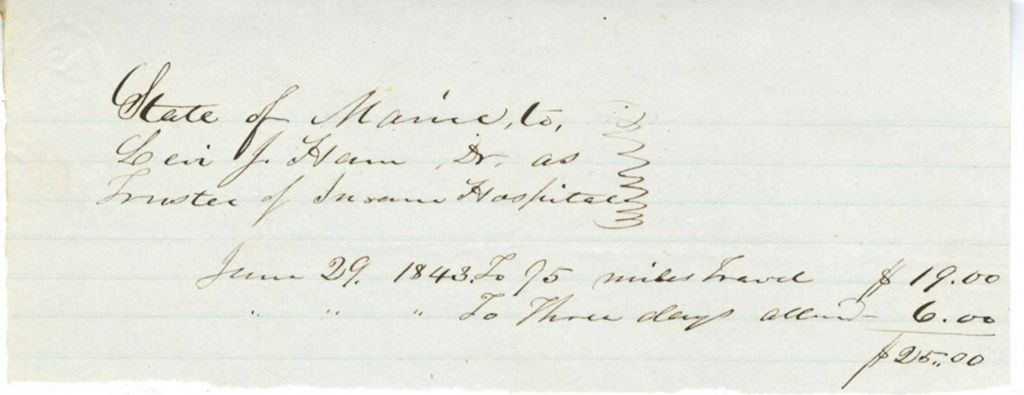 State of Maine, to,
Levi J. Ham, Dr. as
Trustee of Insane Hospital
June 29. 1843. To 95 miles Travel $ 19.00
" " " To Three days attend 6.00
$25.00